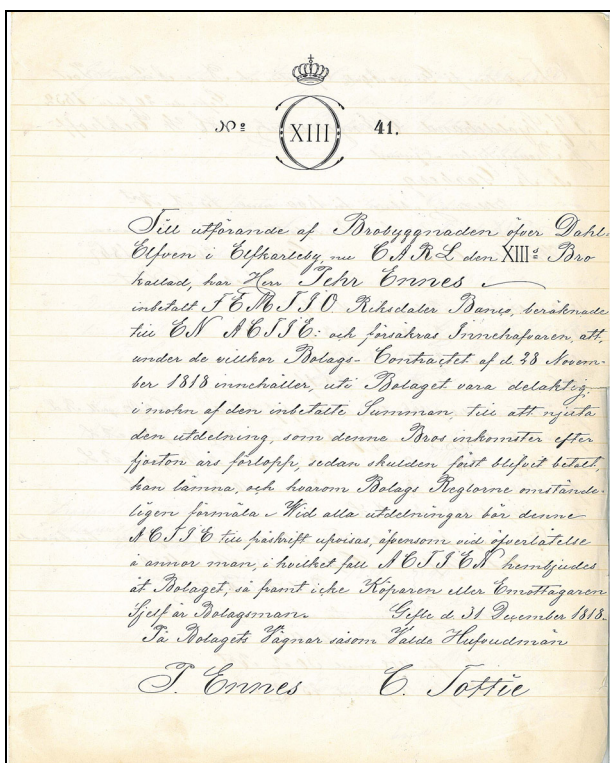 No XIII 41.
Till utförande af Brobyggnaden öfver Dahl-
Elfven i Elfkarleby, nu CARL den XIIIs Bro
kallad, har Herr Pehr Ennes
inbetalt FEMTIO Riksdaler Banco, beräknade
till EN ACTIE: och försäkras Innehafvaren, att,
under de villkor Bolags-Contractet af d. 28 Novem-
ber 1818 innehåller, uti Bolaget vara delaktig,
i mohn af den inbetalte Summan, till att njuta
den utdelning, som denne Bros inkomster efter
fjorton års förlopp, sedan skulden först blifvit betalt,
kan lämna, och hvarom Bolags Reglorne omstände-
ligen förmäla. Wid alla utdelningar bör denne
ACTIE till påskrift upvisas, äfvensom vid öfverlåtelse
å annor man, i hvilket fall ACTIEN hembjudes
åt Bolaget, så framt icke Köparen eller Emottagaren
Sjelf är Bolagsman. Gefle d. 31 December 1818.
På Bolagets Vägnar såsom Valde Hufvudmän
P. Ennes C. Tottie